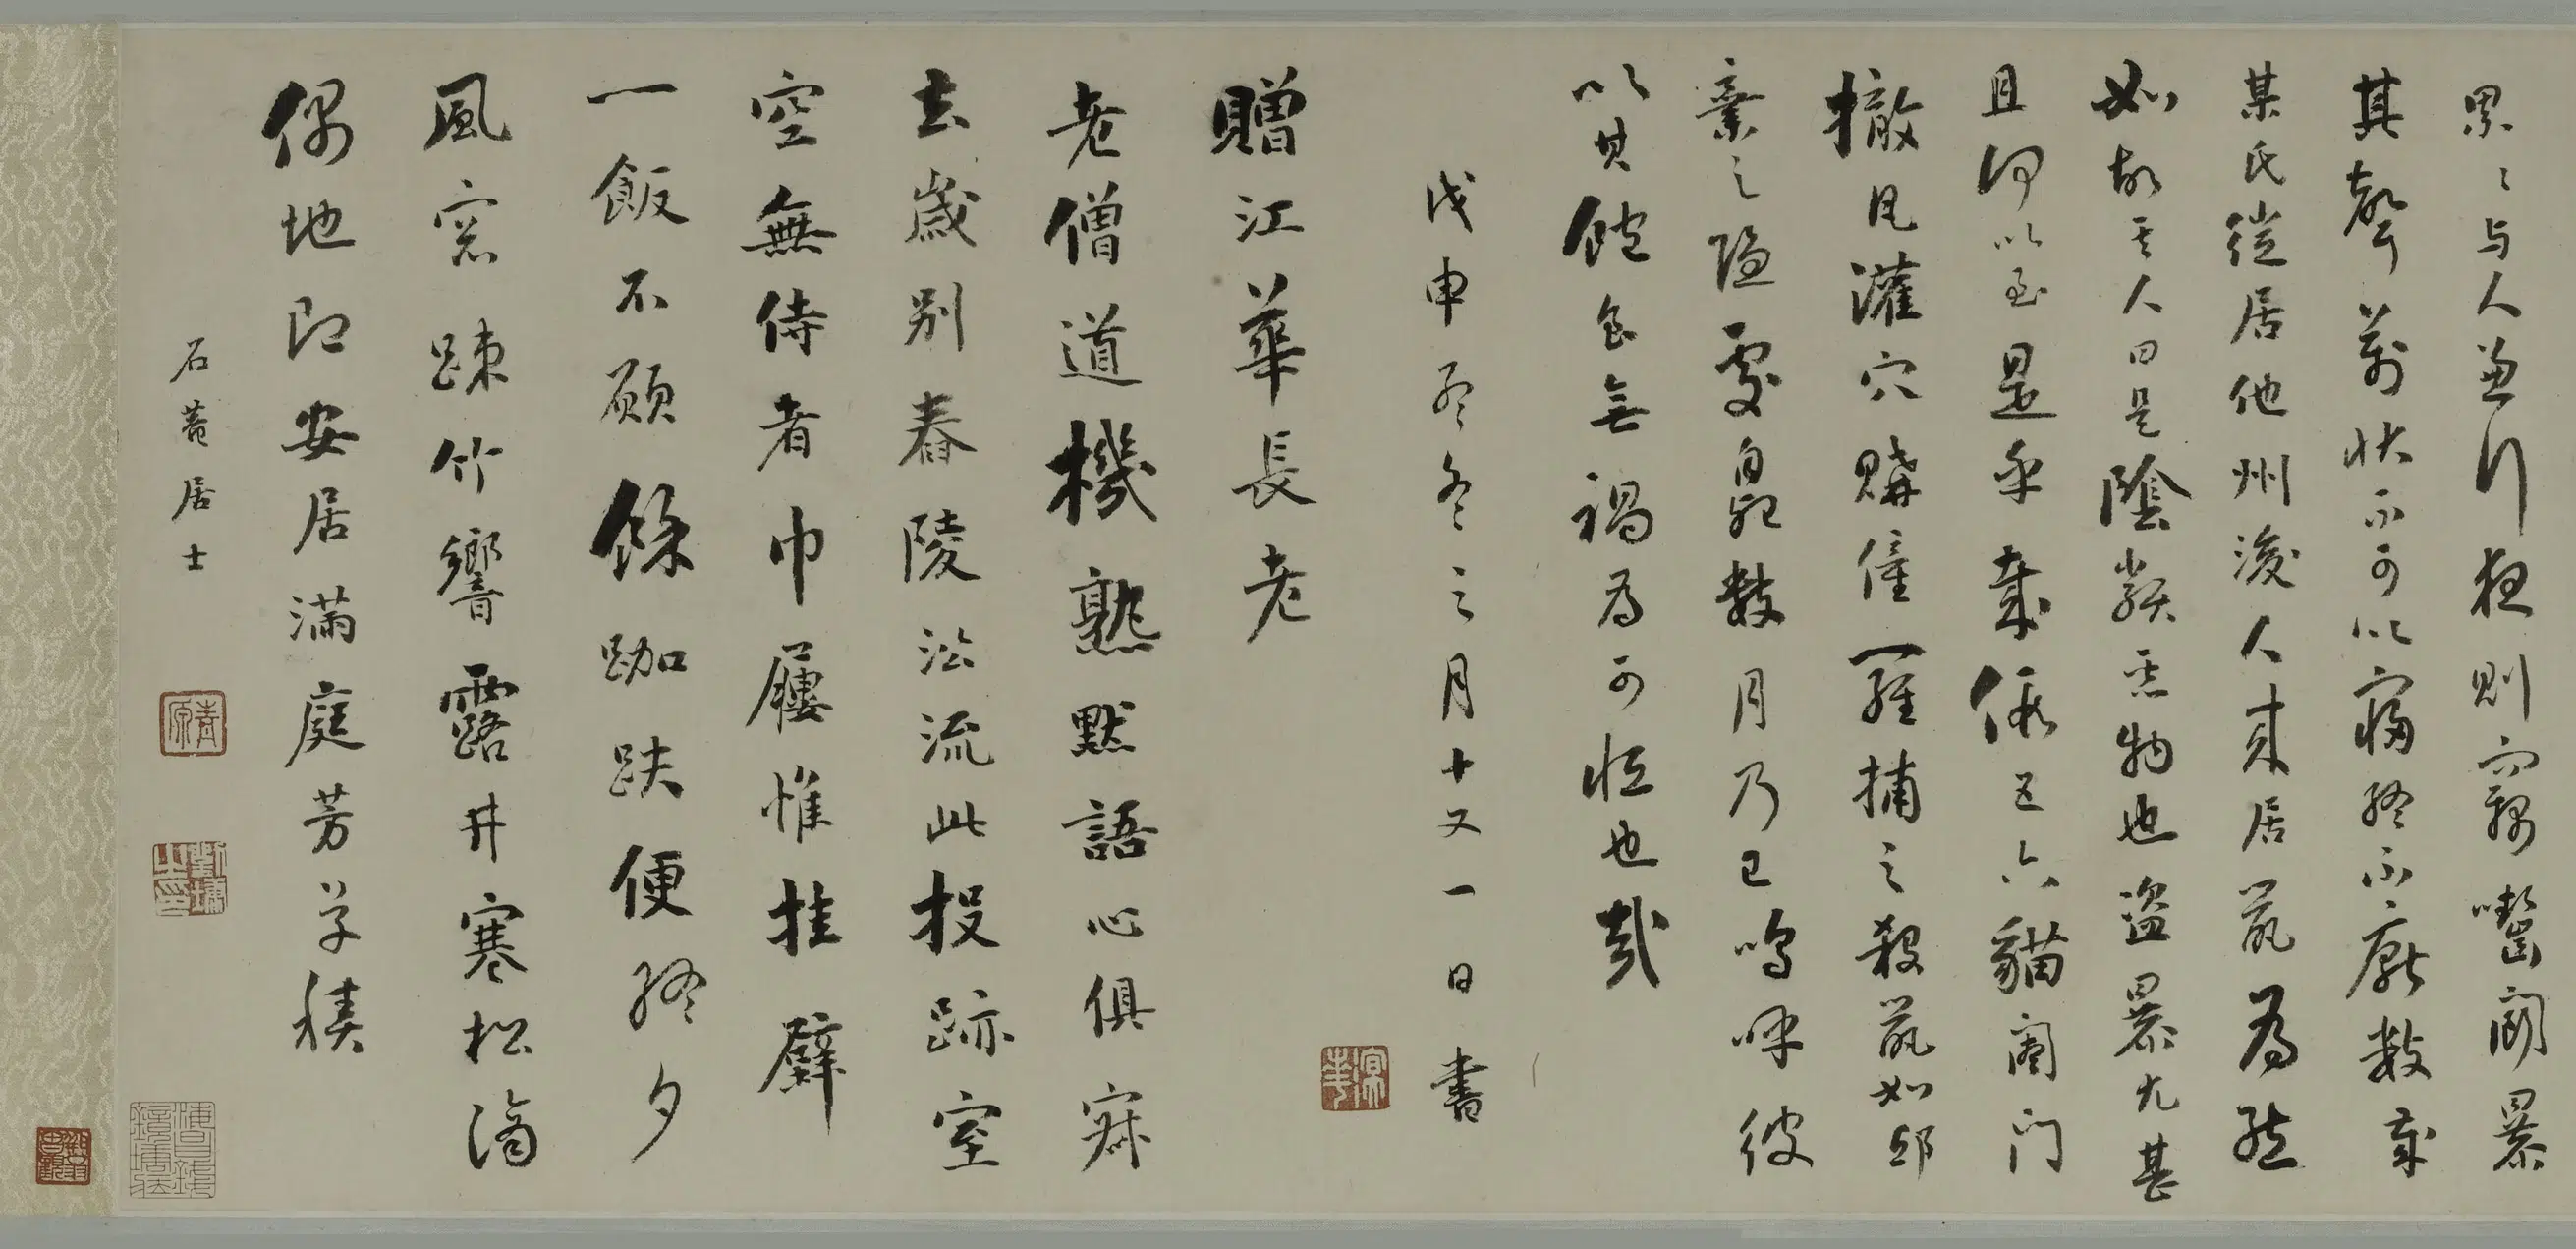 累々与人兼行夜則竊嚙鬬暴
其聲萬狀不可以寢終不厭數歲
某氏徙居他州後人來居鼠為態
如故其人曰是陰類惡物也盜暴尤甚
且何以至是乎哉假五六貓闔门
撤瓦灌穴購僮羅捕之殺鼠如邱
棄之隱處臭數月乃已嗚呼彼
以其飽食無禍為可恒也哉
戊申孟冬之月十又一日書
贈江華長老
老僧道機熟默語心俱寂
去歲別舂陵沿流此投跡室
空無侍者巾屨惟挂壁
一飯不願餘跏趺便終夕
風窓踈竹響露井寒松滴
偶地即安居滿庭芳草積
石菴居士
劉墉之印